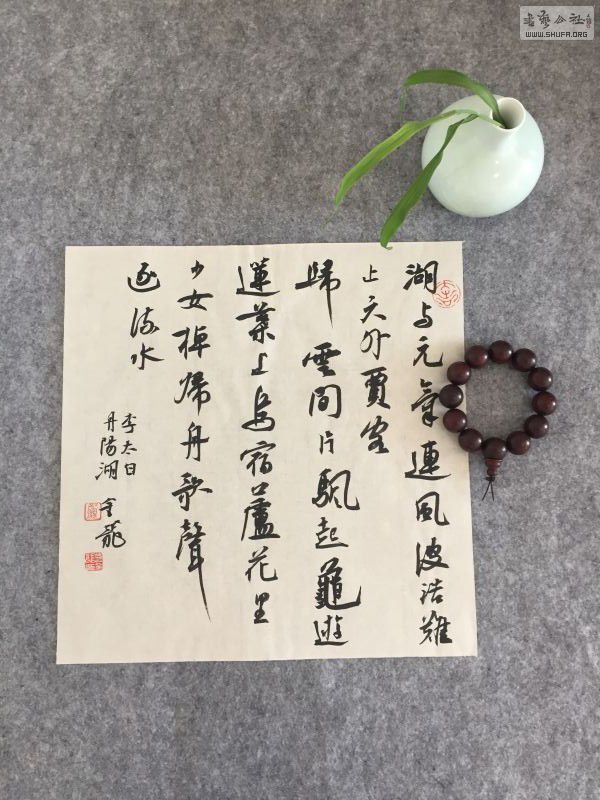 湖与元氣連風波浩難
止天外賈客
歸雲間片颿起龜遊
蓮葉上鳥宿蘆花里
少女棹歸舟歌聲
逐流水
李太白
丹陽湖
龍
書藝公社
WWW.SHUFA.ORG